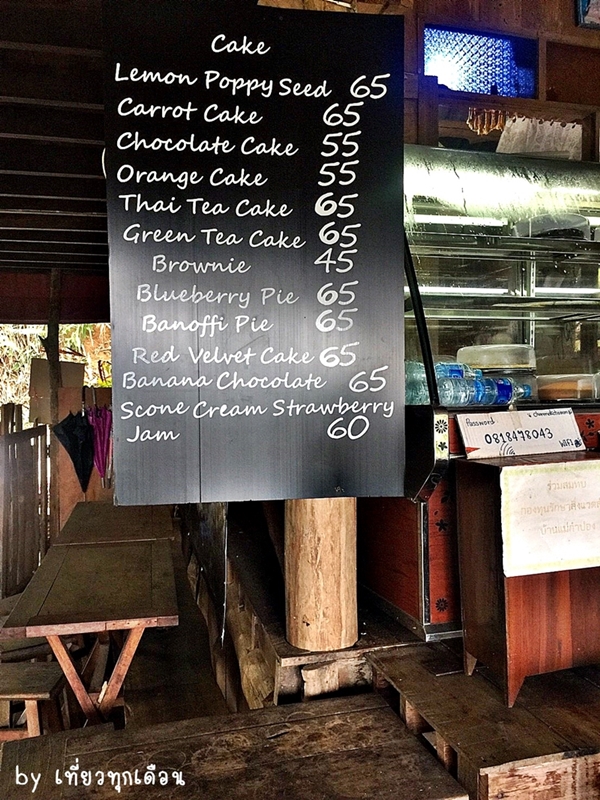 Cake
Lemon Poppy Seed 65
Carrot Cake 65
Chocolate Cake 55
Orange Cake 55
Thai Tea Cake 65
Green Tea Cake 65
Brownie 45
Blueberry Pie 65
Banoffi Pie 65
Red Velvet Cake 65
Banana Chocolate 65
Scone Cream Strawberry
Jam 60
Password
0818478043
WIFI
ร่วมสมทบ
บ้านแม่กำปอง
by เที่ยวทุกเดือน